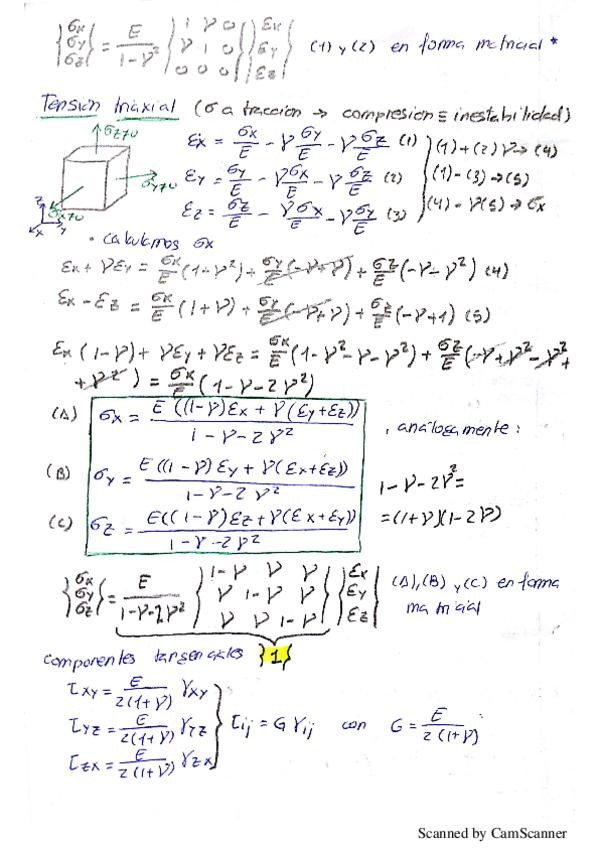 {σx σy σz} = E/(1-ν²) {1 ν 0 ν 1 0 0 0 0} {εx εy εz} (1) y (2) en forma matricial *
Tensión triaxial (σ a tracción → compresión ≡ inestabilidad)
σz≠0
σy≠0
σx≠0
z
x y
εx = σx/E - ν σy/E - ν σz/E (1)
εy = σy/E - ν σx/E - ν σz/E (2)
εz = σz/E - ν σx/E - ν σy/E (3)
(1)+(2)ν → (4)
(1)-(3) → (5)
(4)-ν(5) → σx
• calculamos σx
εx + νεy = σx/E (1-ν²) + σy/E (-ν+ν) + σz/E (-ν-ν²) (4)
εx - εz = σx/E (1+ν) + σy/E (-ν+ν) + σz/E (-ν+1) (5)
εx (1-ν) + νεy + νεz = σx/E (1-ν²-ν-ν²) + σz/E (-ν+ν²-ν²+
+ν²) = σx/E (1-ν-2ν²)
(A) σx = E((1-ν)εx + ν(εy+εz))/(1-ν-2ν²) , análogamente:
(B) σy = E((1-ν)εy + ν(εx+εz))/(1-ν-2ν²)
1-ν-2ν² =
=(1+ν)(1-2ν)
(C) σz = E((1-ν)εz + ν(εx+εy))/(1-ν-2ν²)
{σx σy σz} = E/(1-ν-2ν²) {1-ν ν ν ν 1-ν ν ν ν 1-ν} {εx εy εz} (A),(B) y (C) en forma
matricial
componentes tangenciales {1}
τxy = E/2(1+ν) γxy
τyz = E/2(1+ν) γyz } τij = G γij con G = E/2(1+ν)
τzx = E/2(1+ν) γzx
Scanned by CamScanner